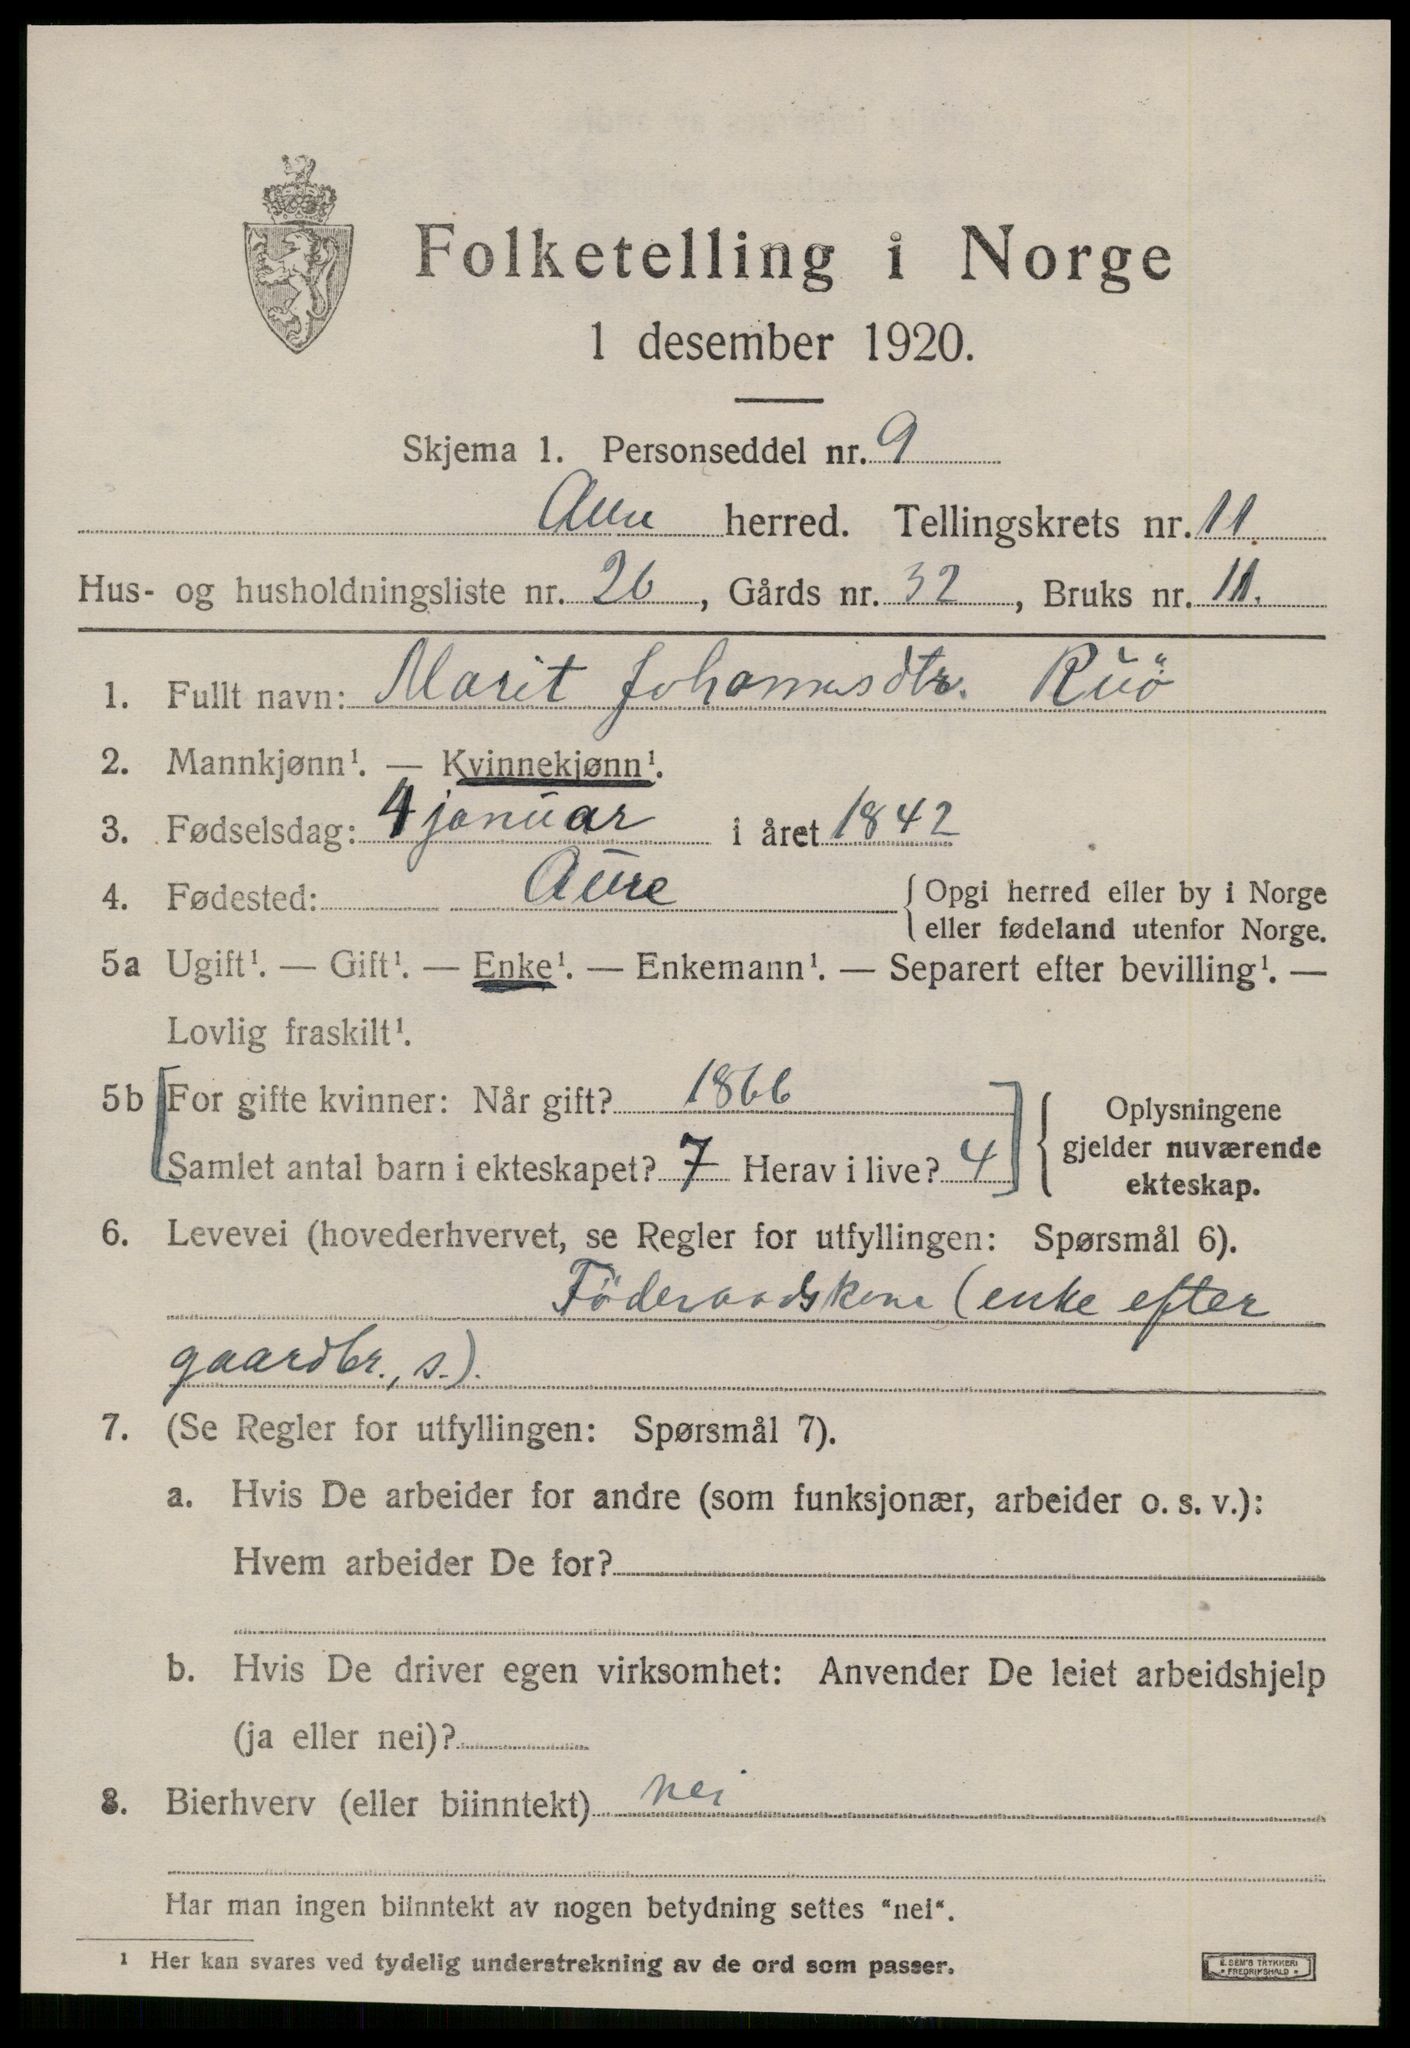 Folketelling i Norge
1 desember 1920.
Skjema 1. Personseddel nr. 9
Aure herred. Tellingskrets nr. 11.
Hus- og husholdningsliste nr. 26, Gårds nr. 32, Bruks nr. 11.
1. Fullt navn: Marit Johannesdtr. Ruö
2. Mannkjønn¹. — Kvinnekjønn¹.
3. Fødselsdag: 4 januar i året 1842
4. Fødested: Aure { Opgi herred eller by i Norge
eller fødeland utenfor Norge.
5a Ugift¹. — Gift¹. — Enke¹. — Enkemann¹. — Separert efter bevilling¹. —
Lovlig fraskilt¹.
5b [For gifte kvinner: Når gift? 1866
Samlet antal barn i ekteskapet? 7 Herav i live? 4]
{ Oplysningene
gjelder nuværende
ekteskap.
6. Levevei (hovederhvervet, se Regler for utfyllingen: Spørsmål 6).
Föderaadskone (enke efter
gaardbr., s.).
7. (Se Regler for utfyllingen: Spørsmål 7).
a. Hvis De arbeider for andre (som funksjonær, arbeider o. s. v.):
Hvem arbeider De for?
b. Hvis De driver egen virksomhet: Anvender De leiet arbeidshjelp
(ja eller nei)?
8. Bierhverv (eller biinntekt) nei
Har man ingen biinntekt av nogen betydning settes "nei".
¹ Her kan svares ved tydelig understrekning av de ord som passer.
E. SEM'S TRYKKERI
• FREDRIKSHALD •